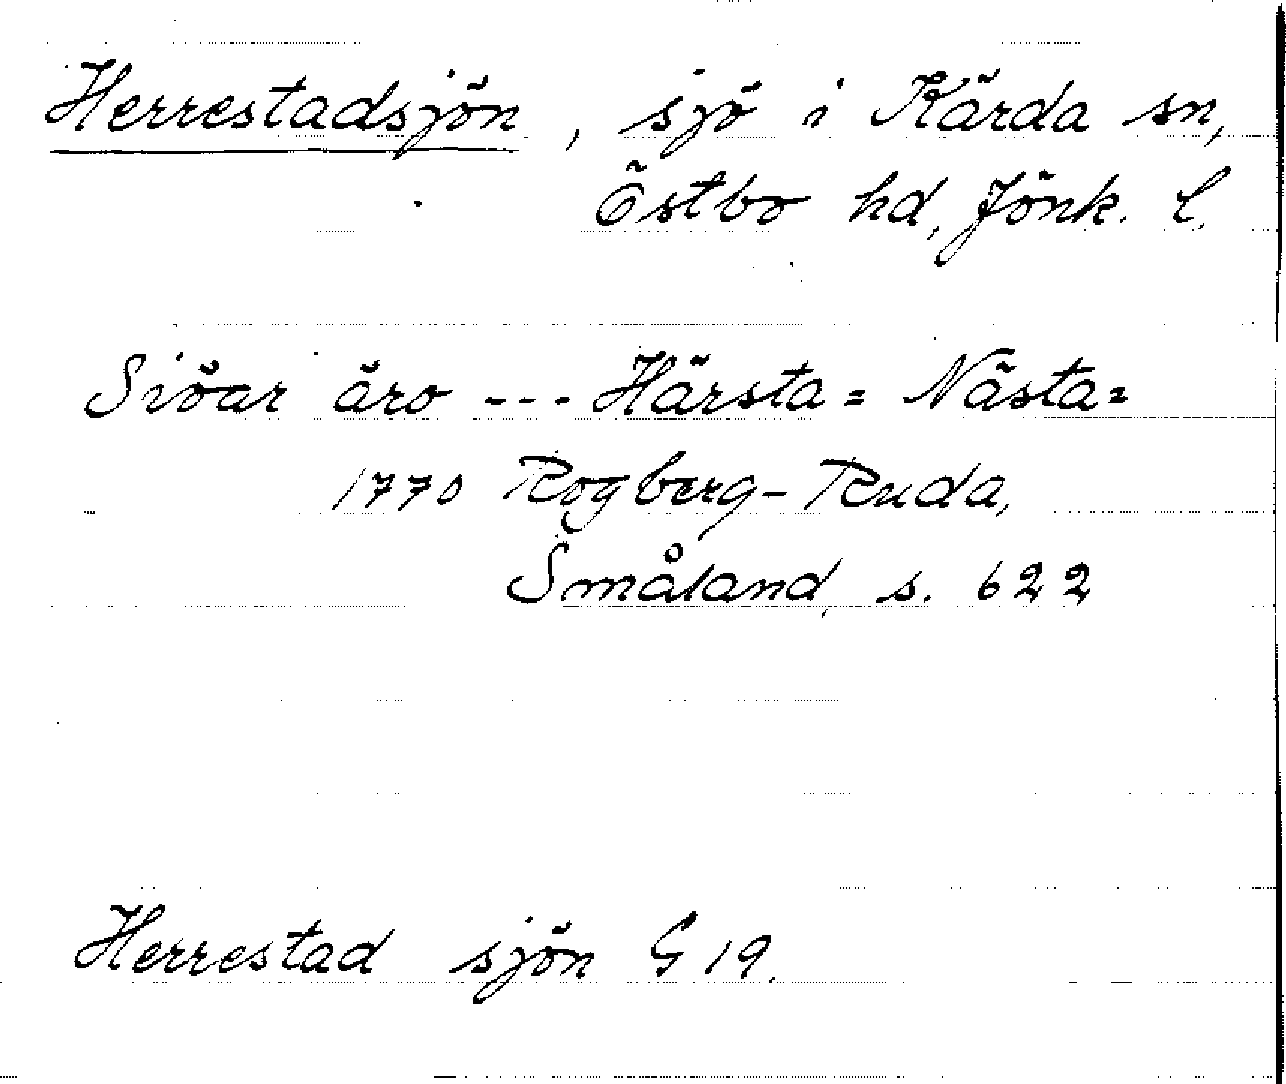 Herrestadsjön, sjö i Kärda sn,
Östbo hd, Jönk. l.
Siöar äro --- Härsta= Nästa=
1770 Rogberg-Ruda,
Småland, s. 622
Herrestad sjön G 19.